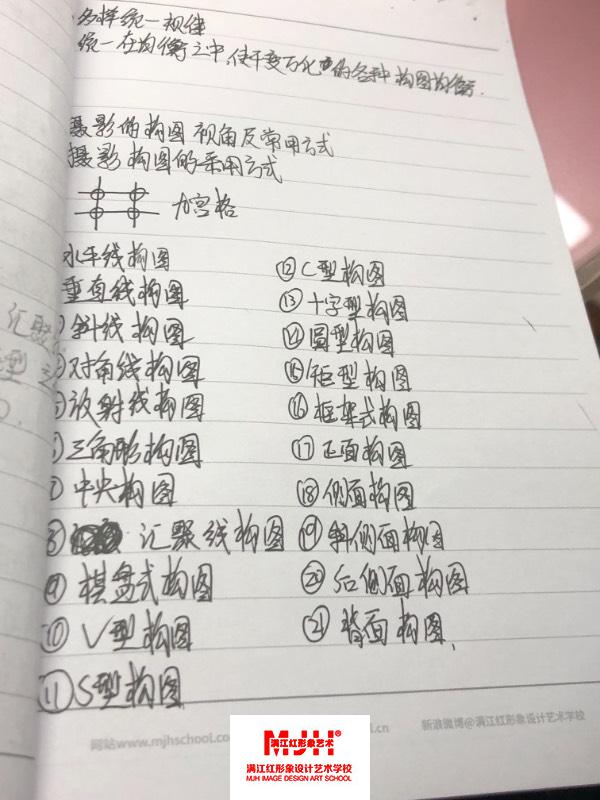 多样统一规律
统一在均衡之中,使千变万化的各种构图均衡.
摄影的构图视角及常用方式
摄影构图的采用方式
九宫格
水平线构图
垂直线构图
斜线构图
对角线构图
放射线构图
三角形构图
⑦中央构图
⑧汇聚线构图
⑨棋盘式构图
⑩V型构图
⑪S型构图
⑫C型构图
⑬十字型构图
⑭圆型构图
⑮矩型构图
⑯框架式构图
⑰正面构图
⑱侧面构图
⑲斜侧面构图
⑳后侧面构图
㉑背面构图.
汇聚
型
新浪微博@满江红形象设计艺术学校
网站www.mjhschool.co
.cn
满江红形象艺术
MJH®
满江红形象设计艺术学校
MJH IMAGE DESIGN ART SCHOOL